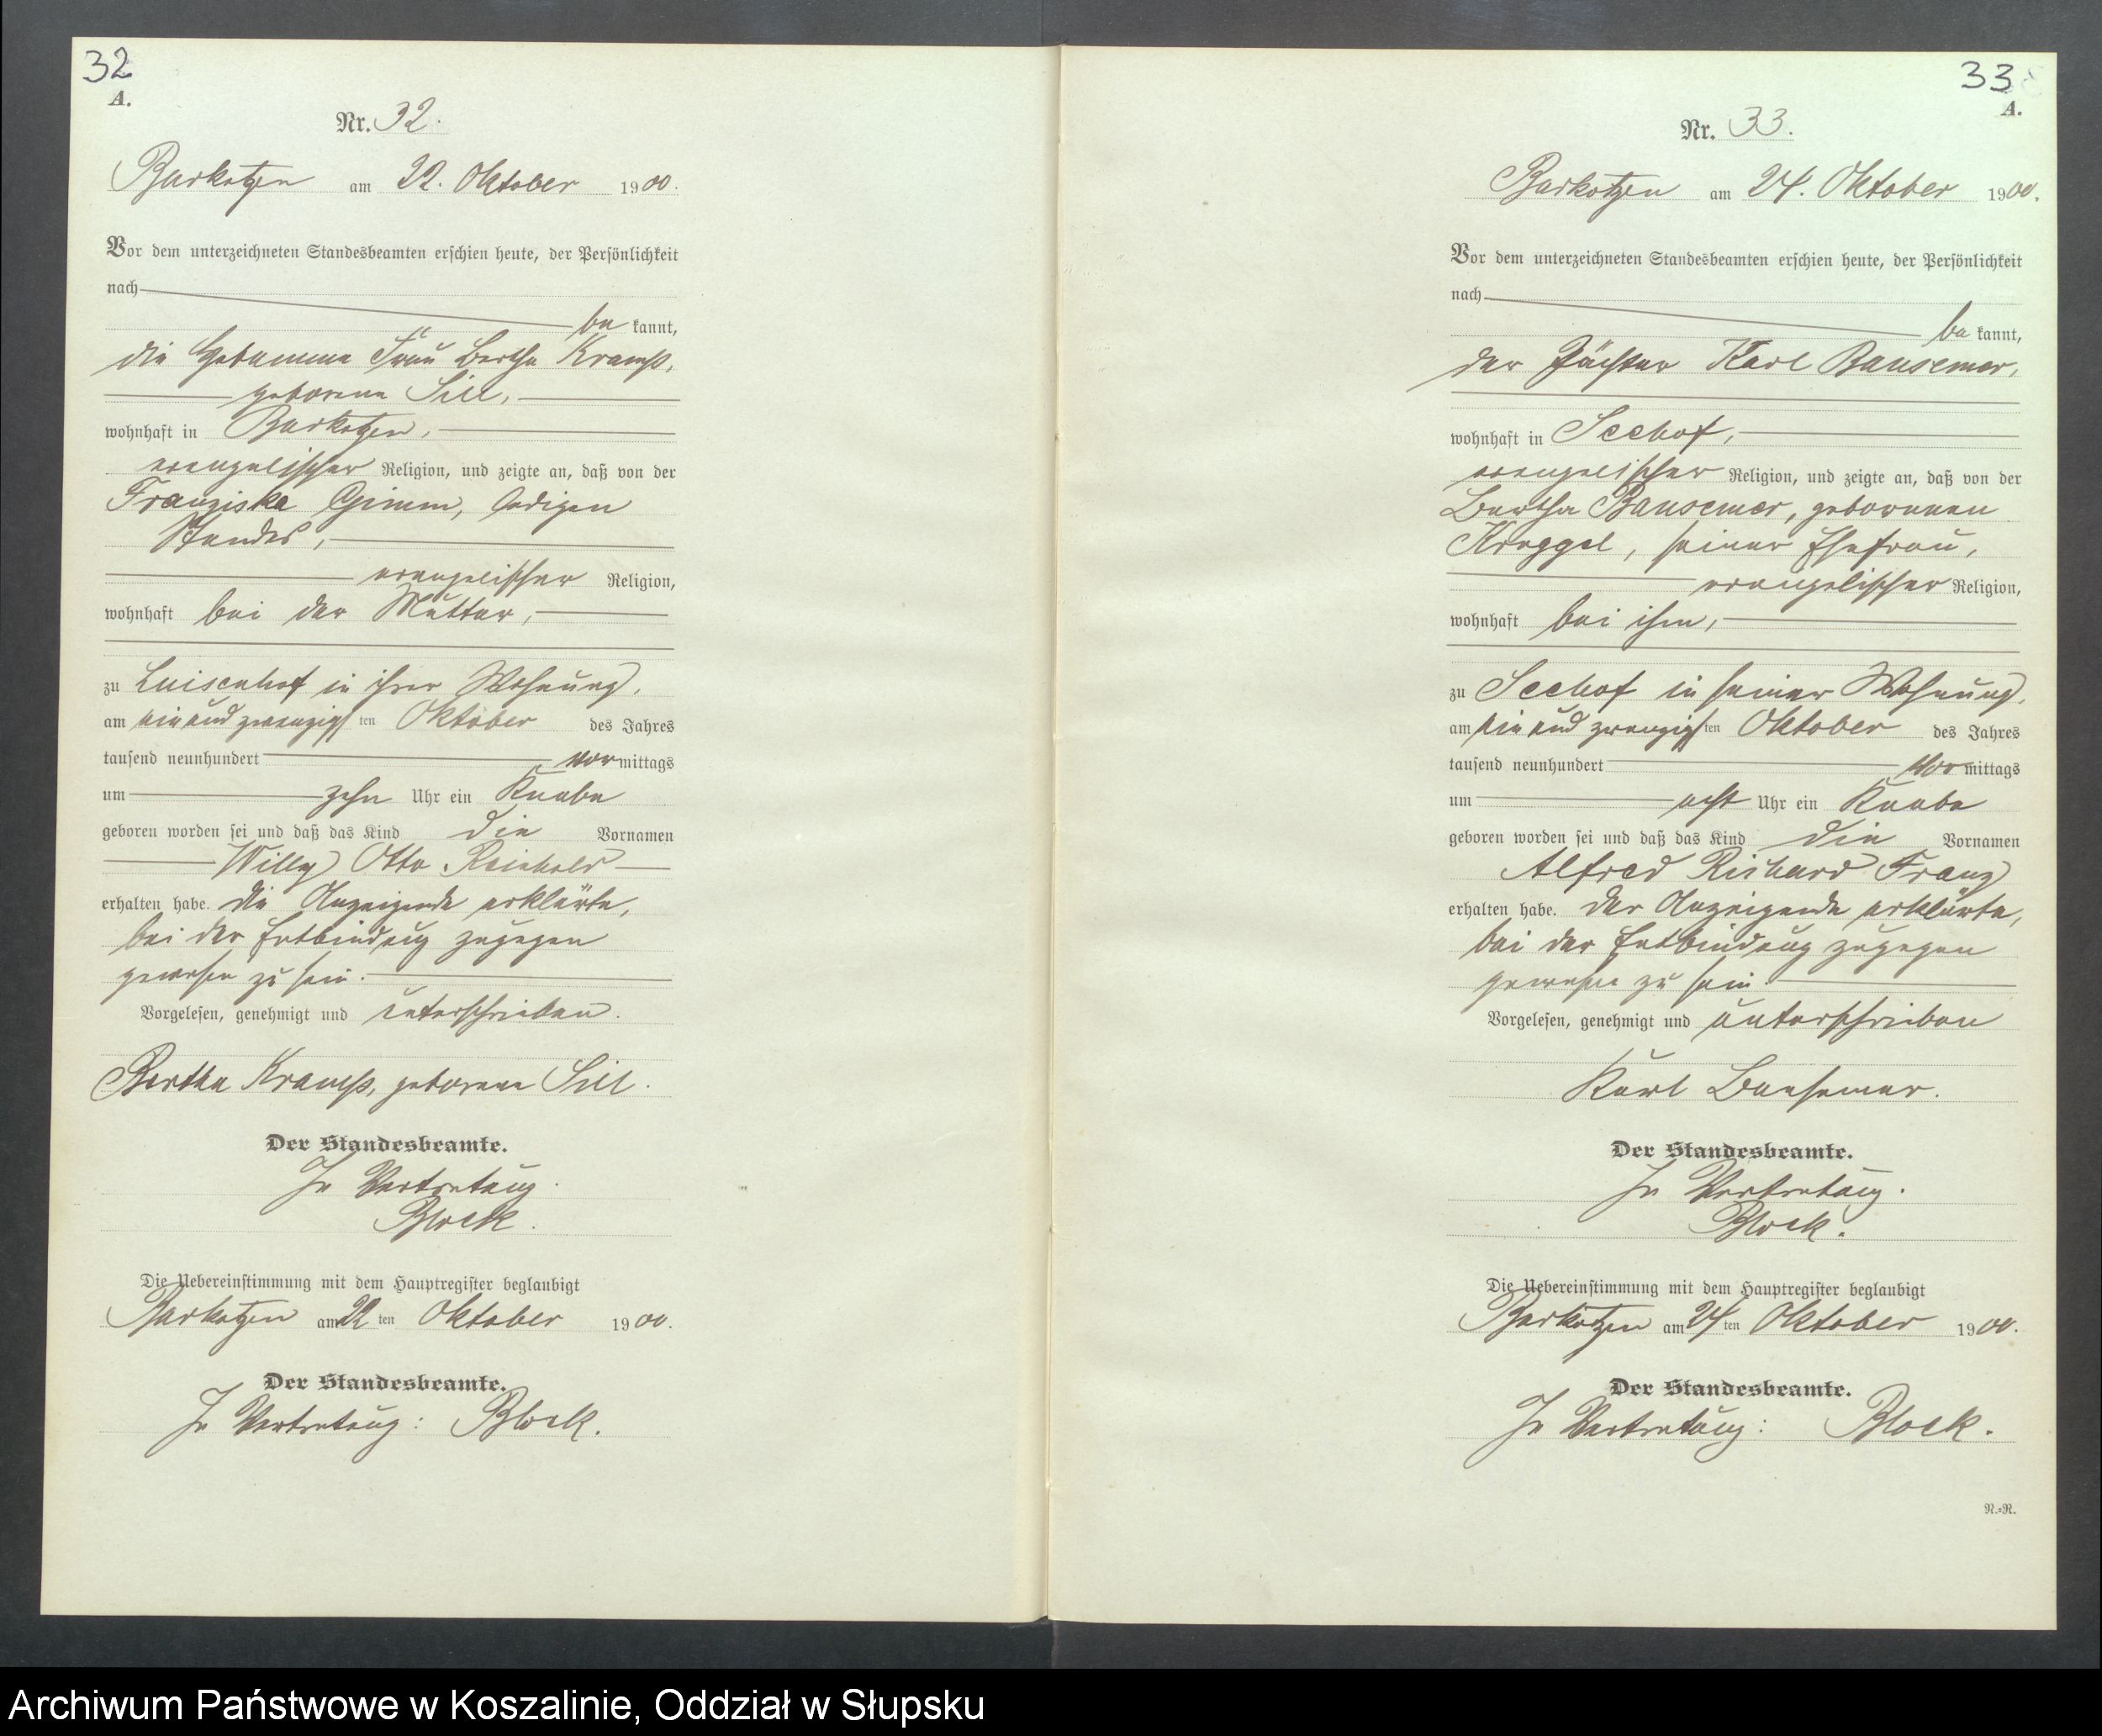 32
A.
Nr. 32.
Barkotzen am 22. Oktober 1900.
Vor dem unterzeichneten Standesbeamten erschien heute, der Persönlichkeit
nach
be kannt,
die Hebamme Frau Bertha Kramp,
geborene Sill,
wohnhaft in Barkotzen,
evangelischer Religion, und zeigte an, daß von der
Franziska Grimm, ledigen
Standes,
evangelischer Religion,
wohnhaft bei der Mutter,
zu Luisenhof in ihrer Wohnung,
am ein und zwanzigsten Oktober des Jahres
tausend neunhundert vormittags
um zehn Uhr ein Knabe
geboren worden sei und daß das Kind die Vornamen
Willy Otto Reinhold
erhalten habe. Die Anzeigende erklärte,
bei der Entbindung zugegen
gewesen zu sein.
Vorgelesen, genehmigt und unterschrieben.
Bertha Kramp, geborene Sill.
Der Standesbeamte.
In Vertretung.
Block.
Die Uebereinstimmung mit dem Hauptregister beglaubigt
Barkotzen am 22 ten Oktober 1900.
Der Standesbeamte.
In Vertretung: Block.
33
A.
Nr. 33.
Barkotzen am 24. Oktober 1900.
Vor dem unterzeichneten Standesbeamten erschien heute, der Persönlichkeit
nach
be kannt,
der Pächter Karl Bansemer,
wohnhaft in Seehof,
evangelischer Religion, und zeigte an, daß von der
Bertha Bansemer, geborenen
Kroggel, seiner Ehefrau,
evangelischer Religion,
wohnhaft bei ihm,
zu Seehof in seiner Wohnung,
am ein und zwanzigsten Oktober des Jahres
tausend neunhundert vormittags
um acht Uhr ein Knabe
geboren worden sei und daß das Kind die Vornamen
Alfred Richard Franz
erhalten habe. Der Anzeigende erklärte,
bei der Entbindung zugegen
gewesen zu sein.
Vorgelesen, genehmigt und unterschrieben
Karl Bansemer.
Der Standesbeamte.
In Vertretung.
Block.
Die Uebereinstimmung mit dem Hauptregister beglaubigt
Barkotzen am 24 ten Oktober 1900.
Der Standesbeamte.
In Vertretung: Block.
R.=R.
Archiwum Państwowe w Koszalinie, Oddział w Słupsku